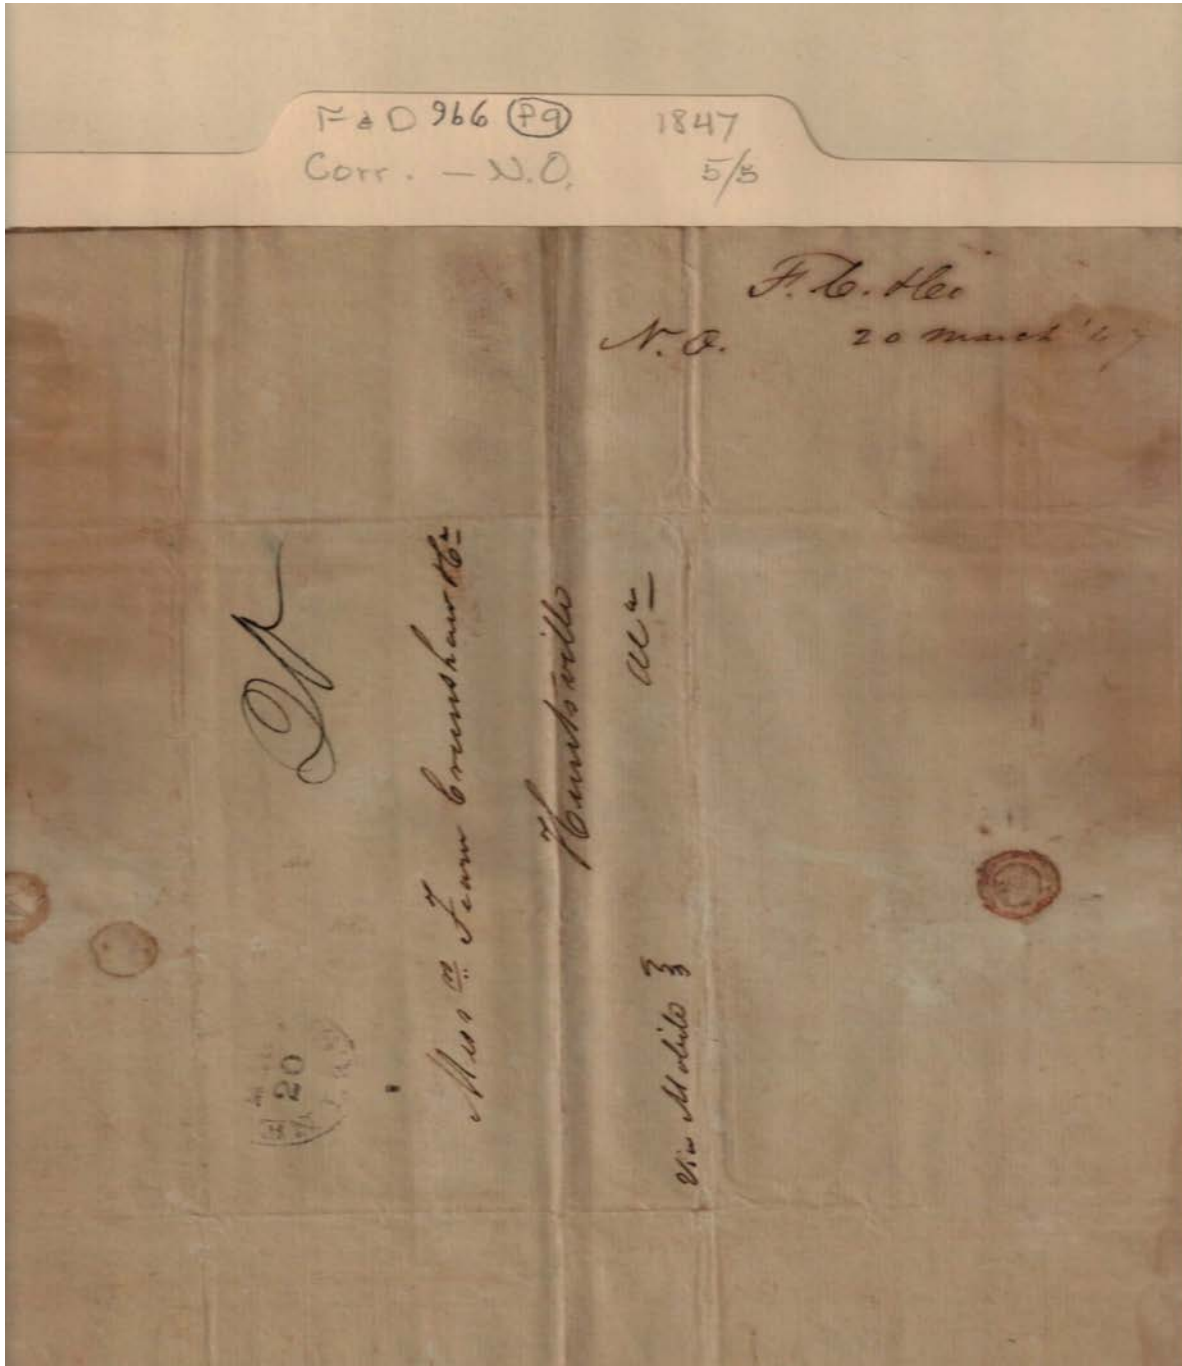 F & D 966 P9 1847
Corr. - N.O. 5/5
F. C. & Co
N. O. 20 March '47
Mess rs Fearn Crenshaw & Co
Huntsville
Al a
Via Mobile
20